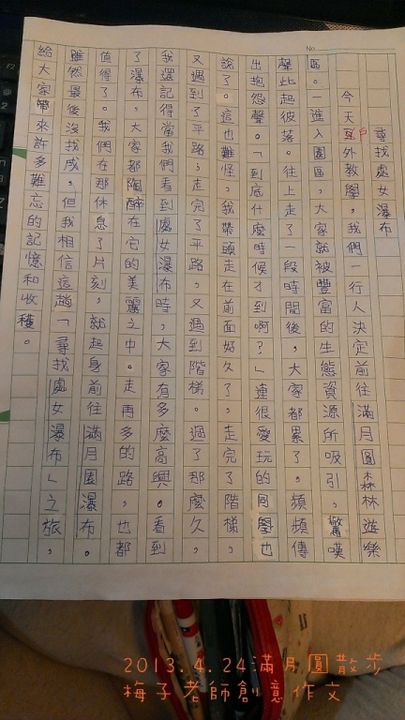 No.
尋找處女瀑布
今天戶外教學，我們一行人決定前往滿月圓森林遊樂
區。一進入園區，大家就被豐富的生態資源所吸引，驚嘆
聲此起彼落。往上走了一段時間後，大家都累了，頻頻傳
出抱怨聲。「到底什麼時候才到啊？」連很愛玩的同學也
說了。這也難怪，我帶頭走在前面好久了，走完了階梯，
又遇到了平路；走完了平路，又遇到階梯。過了那麼久，
我還記得當我們看到處女瀑布時，大家有多麼高興。看到
了瀑布，大家都陶醉在它的美麗之中。走再多的路，也都
值得了。我們在那休息了片刻，就起身前往滿月圓瀑布。
雖然最後沒找成，但我相信這趟「尋找處女瀑布」之旅，
給大家帶來許多難忘的記憶和收穫。
2013.4.24滿月圓散步
梅子老師創意作文